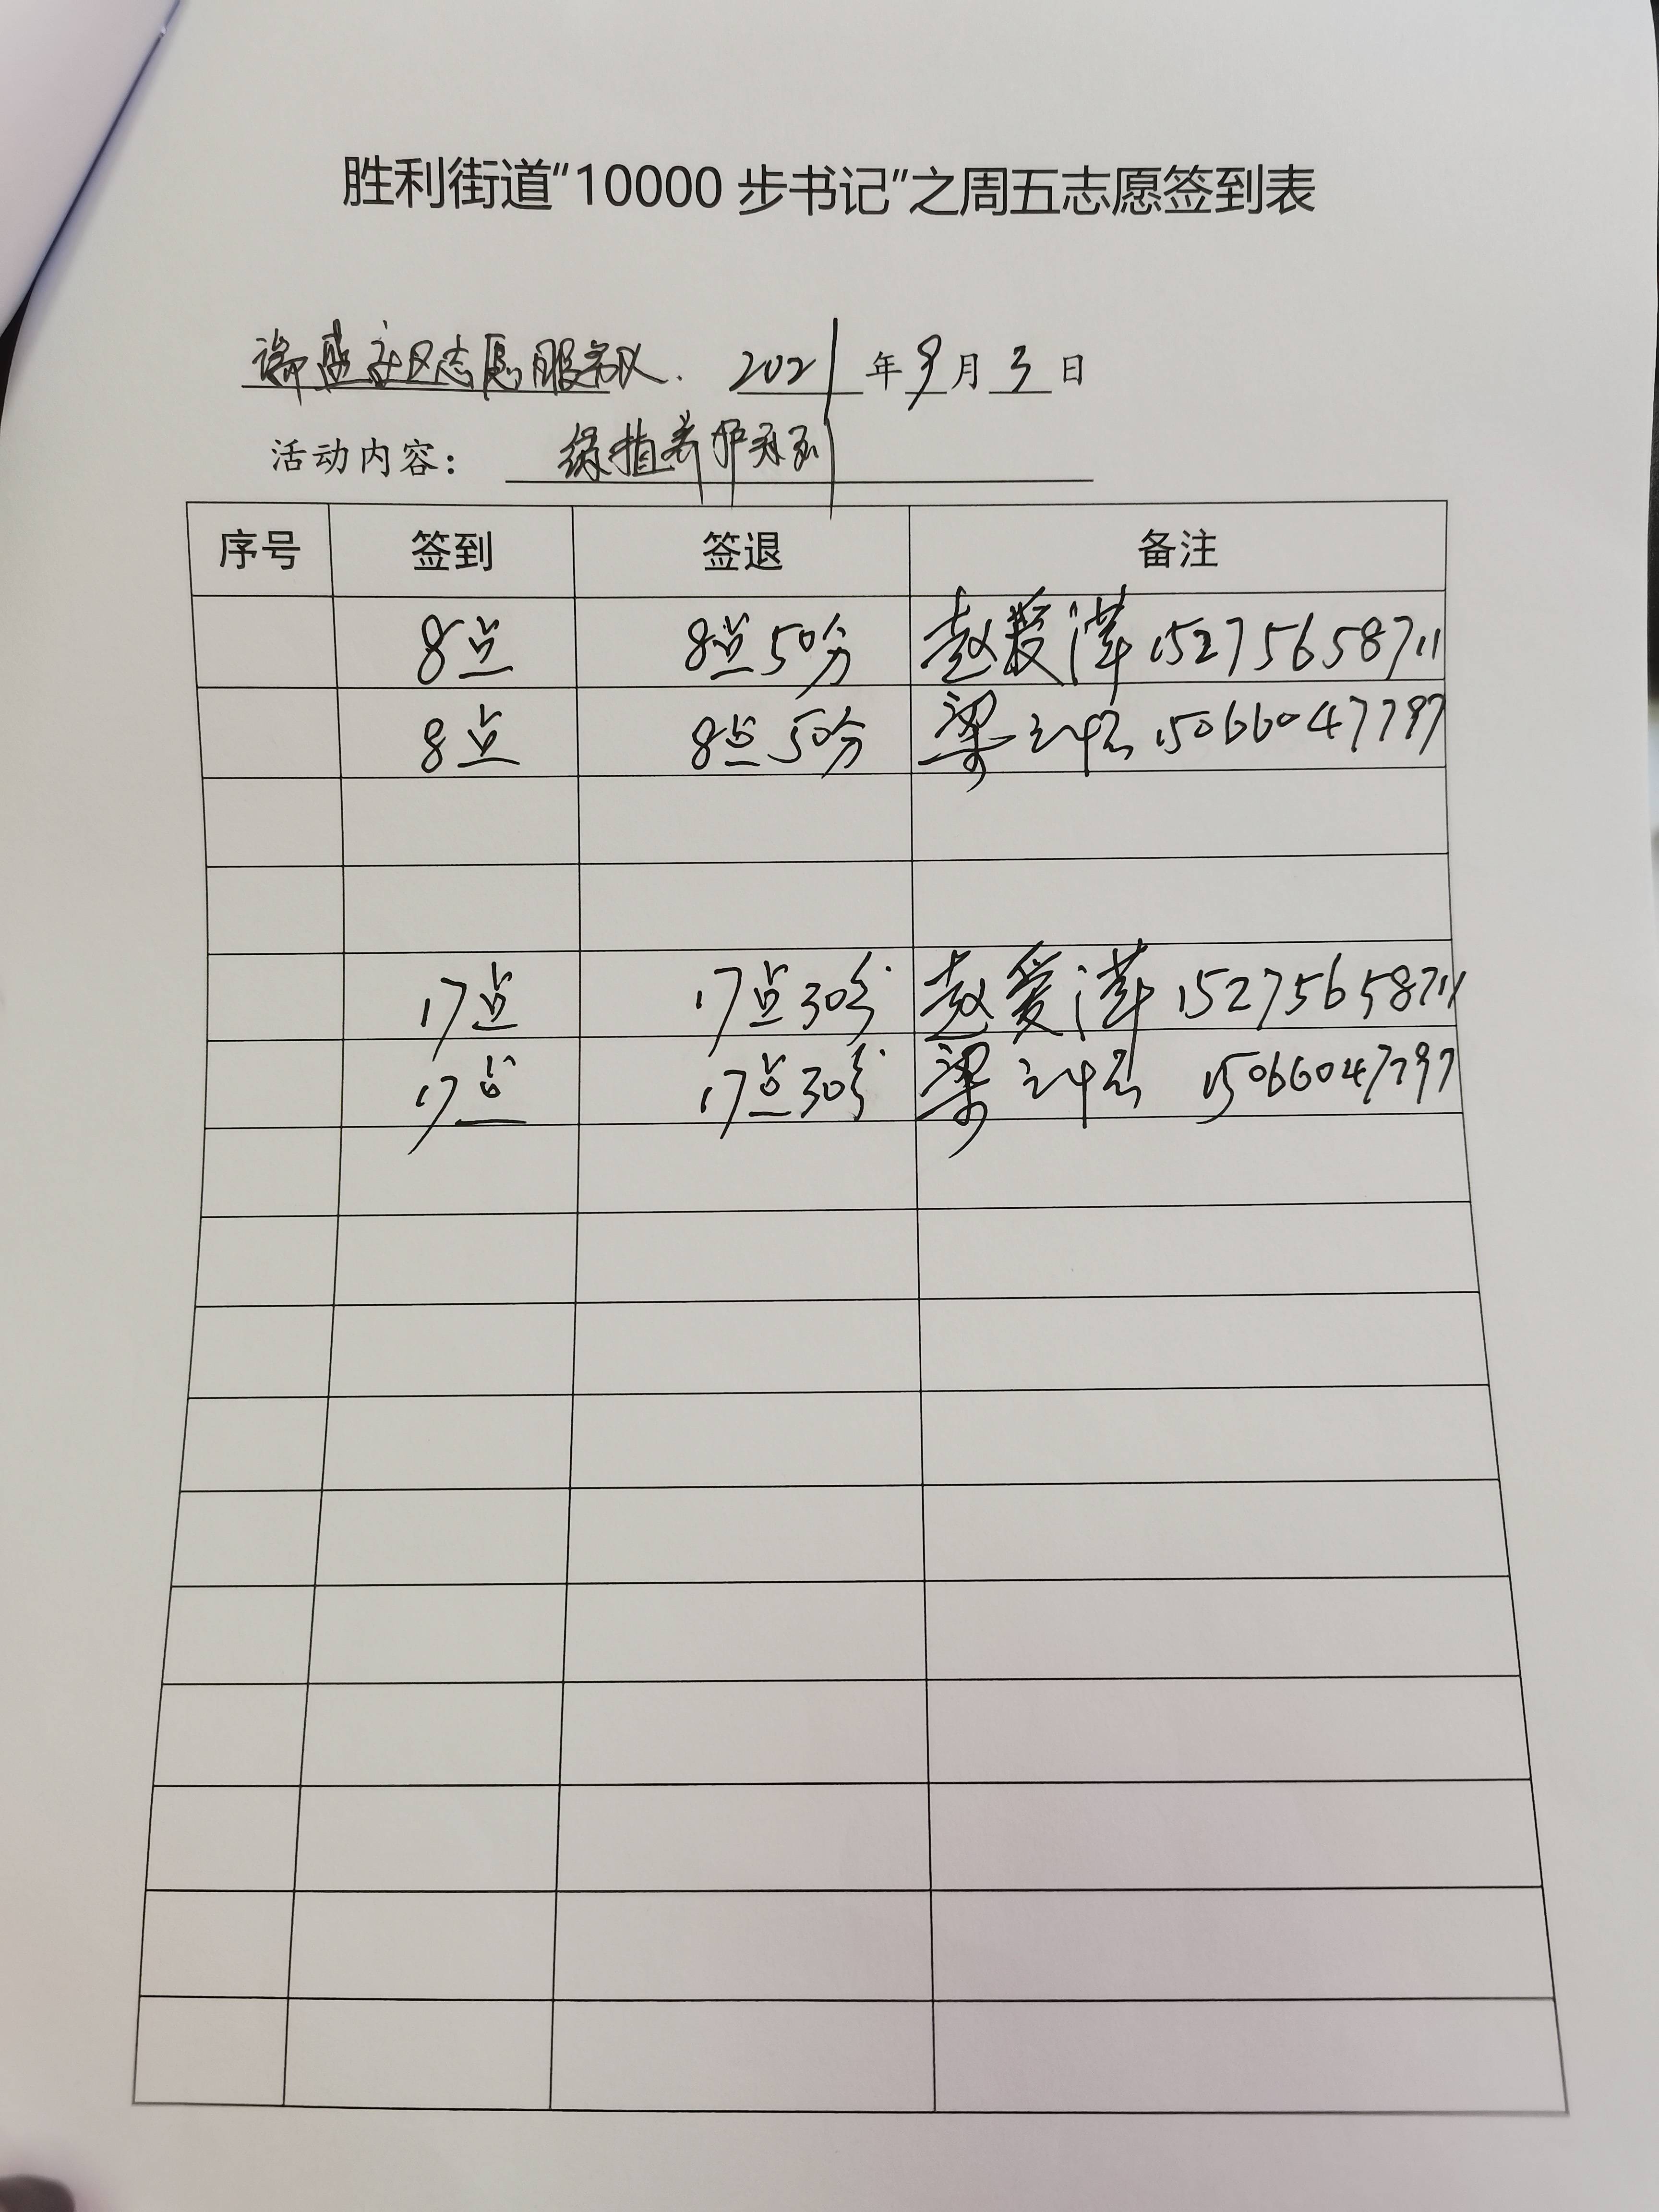 胜利街道“10000 步书记”之周五志愿签到表
社区志愿服务队. 2021 年 9 月 3 日
活动内容： 绿植养护系列
序号 签到 签退 备注
8点 8点50分 赵爱萍 15275658711
8点 8点50分 梁 15066047797
17点 17点30分 赵爱萍 15275658711
17点 17点30分 梁 15066047797